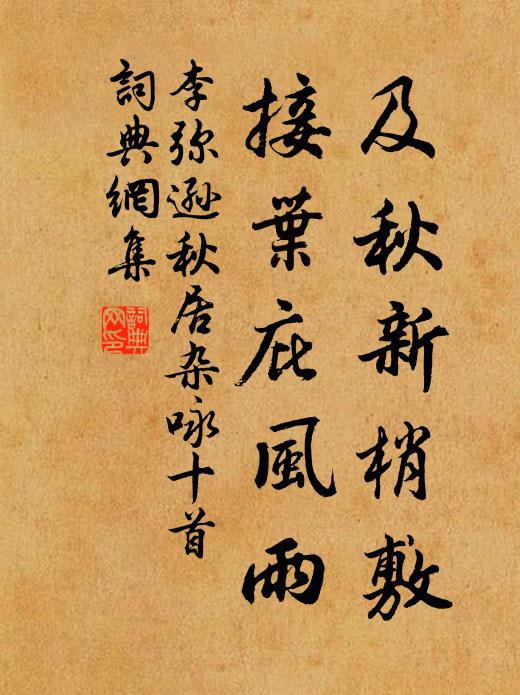 及秋新梢敷
接葉庇風雨
李弥遜秋居杂咏十首
詞典網集
詞典網印